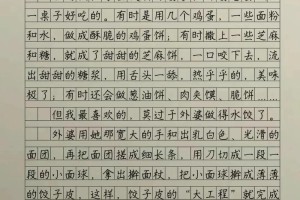 一桌子好吃的。有时是用几个鸡蛋，一些面粉
和水，做成酥脆的鸡蛋饼；有时撒上一些芝麻
和糖，就成了甜甜的芝麻饼，一口咬下去，流
出甜甜的糖浆，用舌头一舔，热乎乎的，美味
极了；有时还会做葱油饼、肉夹馍、脆饼……
但我最喜欢的，莫过于外婆做得水饺了。
外婆用她那宽大的手和出乳白色、光滑的
面团，再把面团搓成细长条，用刀切成一段一
段的小面球，拿出擀面杖，把小面球擀成薄薄
的饺子皮，这样，饺子皮的“大工程”就完成